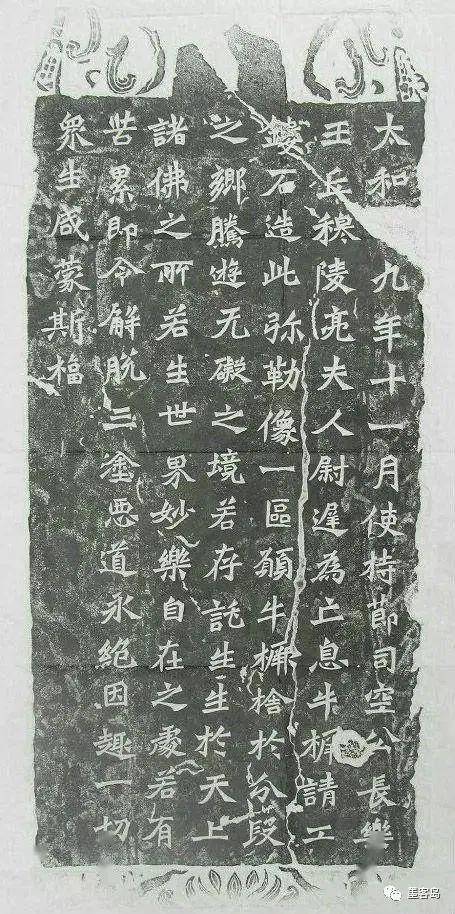 太和 九年十一月使持節司空公長樂
王丘穆陵亮夫人尉遲為亡息牛橛請工
鏤石造此弥勒像一區願牛橛捨於分段
之鄉騰遊无礙之境若存託生生於天上
諸佛之所若生世界妙樂自在之處若有
苦累即令解脫三塗惡道永絕因趣一切
衆生咸蒙斯福
墨客岛